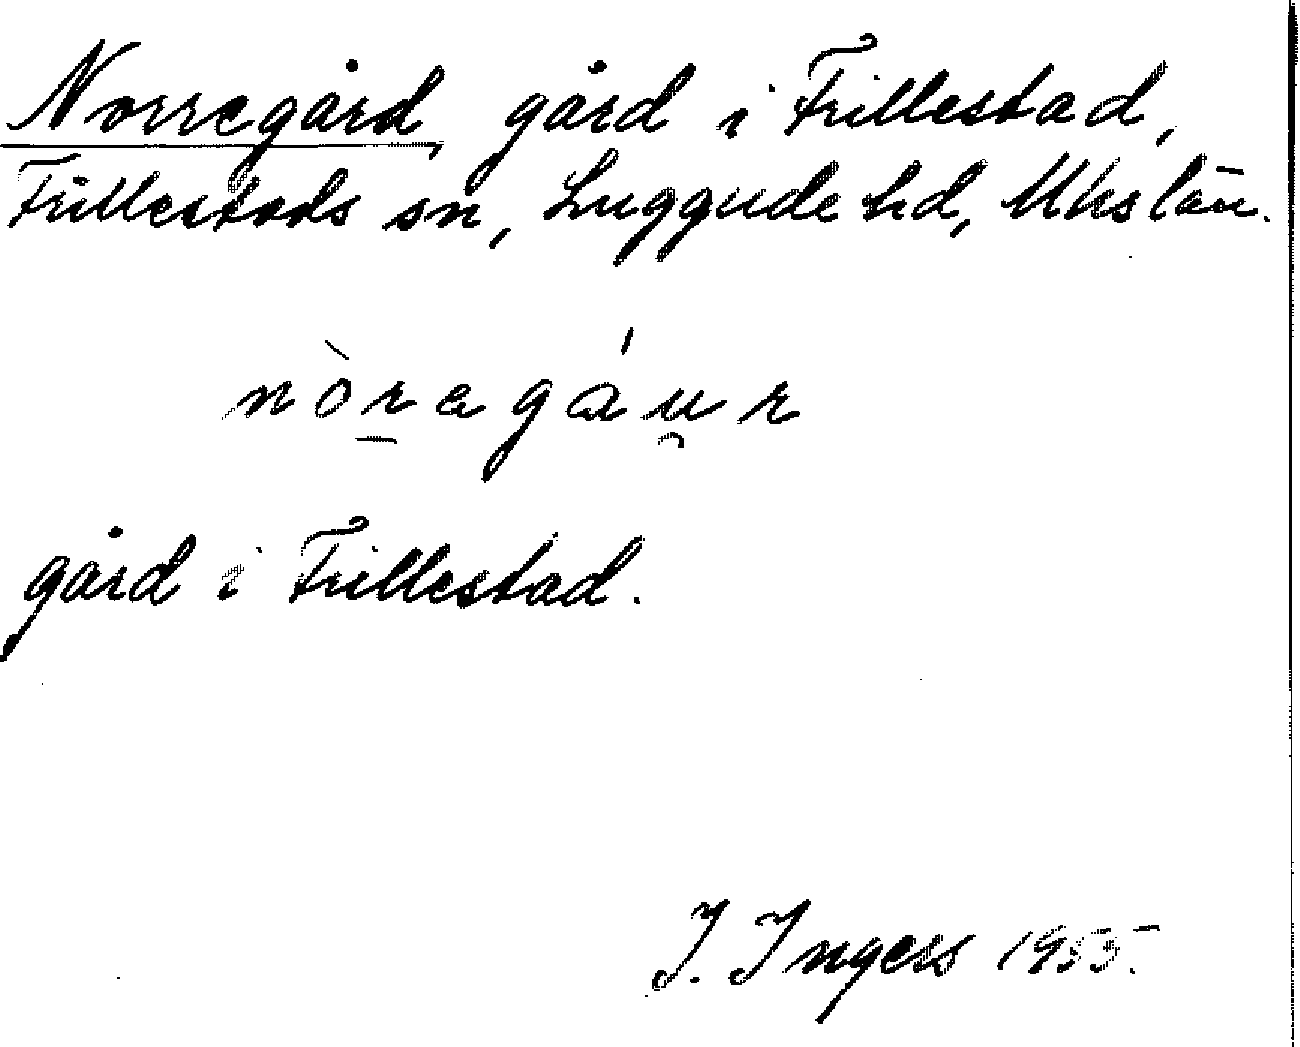 Norregård, gård i Frillestad,
Frillestads sn, Luggude hd, Mhs län.
nòr̲agáu̯r
gård i Frillestad.
I. Ingers 1955.